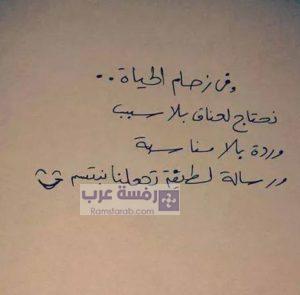 وفى زحام الحياة..
نحتاج لعناق بلا سبب
وردة بلا مناسبة
ورسالة لطيفة تجعلنا نبتسم
رفسة عرب
Ramstarab.com